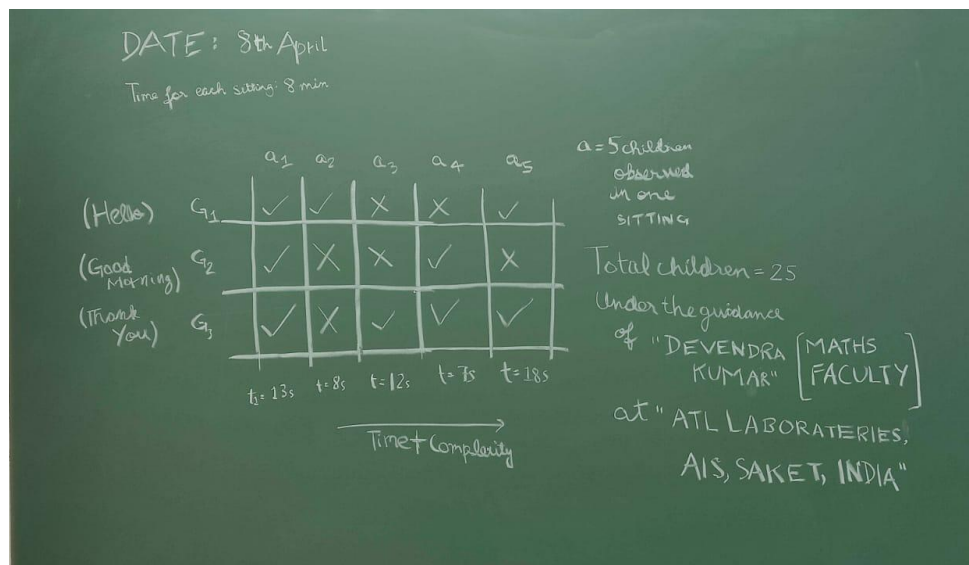 DATE: 8th April
Time for each sitting: 8 min
a1 a2 a3 a4 a5
(Hello) G1 ✓ ✓ X X ✓
(Good Morning) G2 ✓ X X ✓ X
(Thank You) G3 ✓ X ✓ ✓ ✓
t1=13s t=8s t=12s t=7s t=18s
Time + Complexity
a = 5 children
observed
in one
SITTING
Total children = 25
Under the guidance
of "DEVENDRA
KUMAR" [MATHS
FACULTY]
at "ATL LABORATERIES,
AIS, SAKET, INDIA"